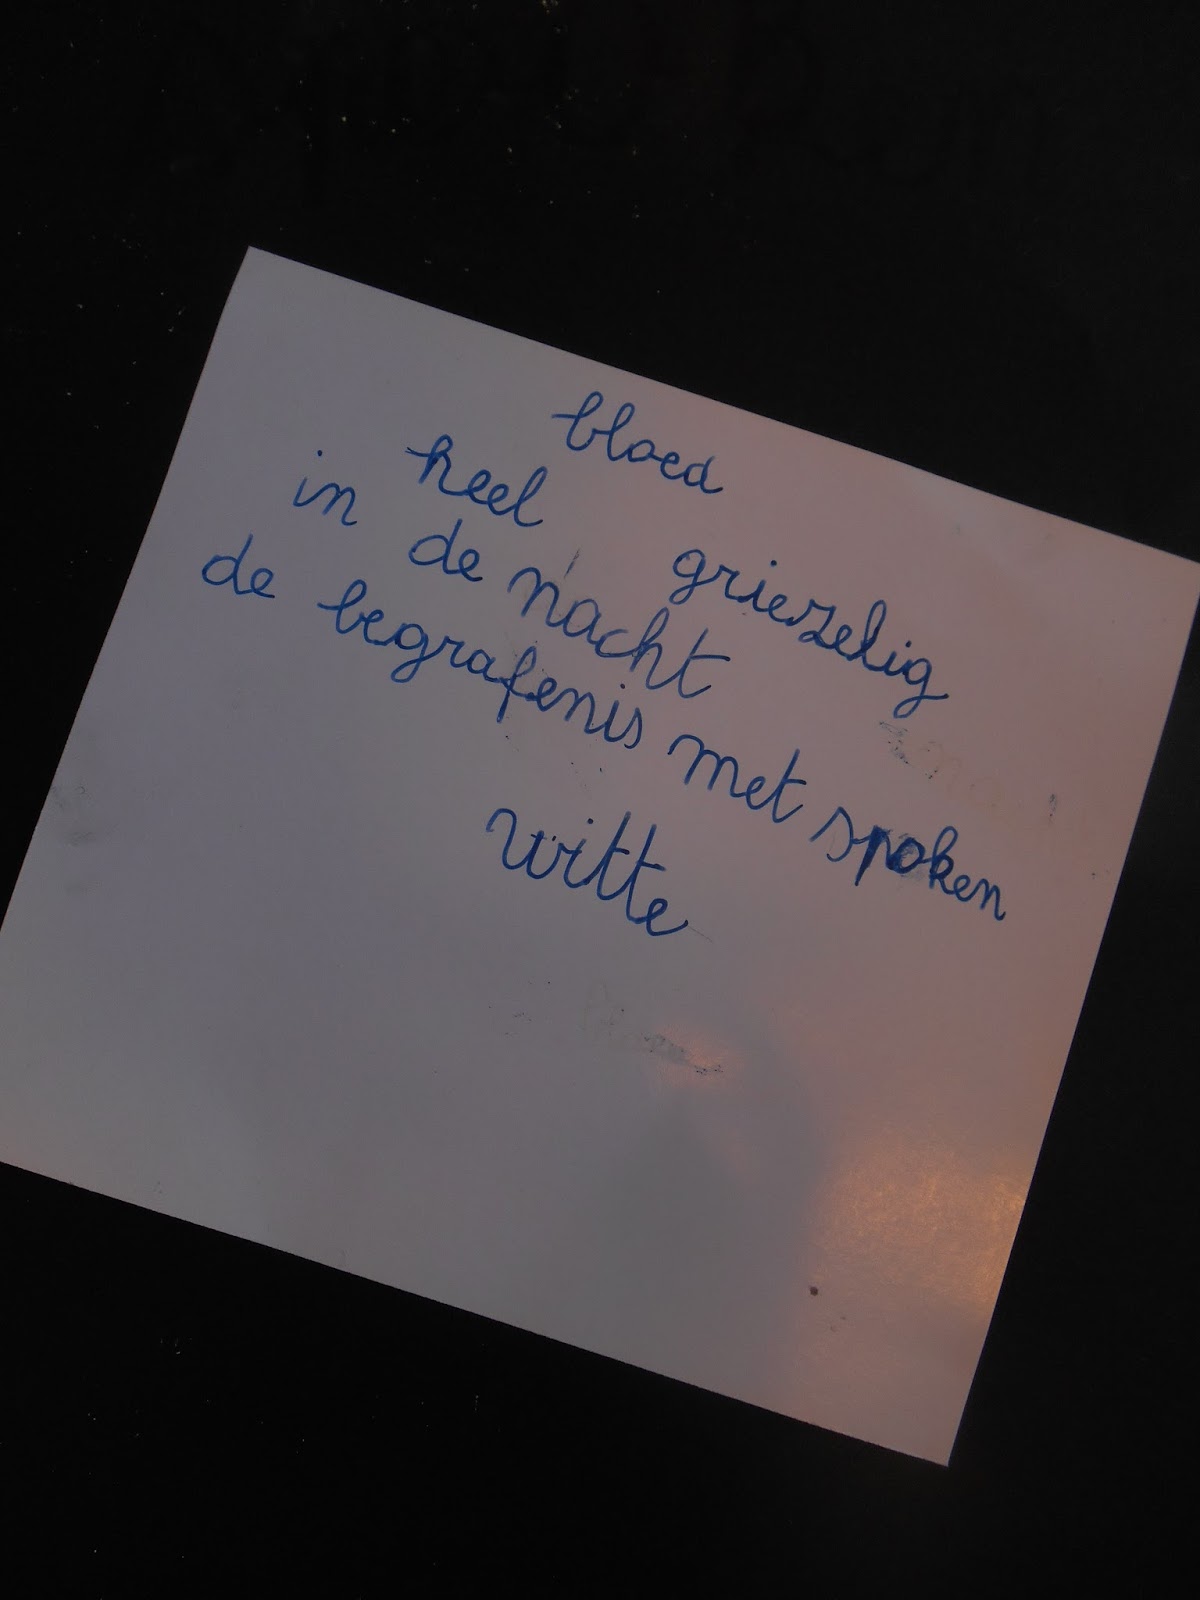 bloed
heel griezelig
in de nacht
de begrafenis met spoken
witte